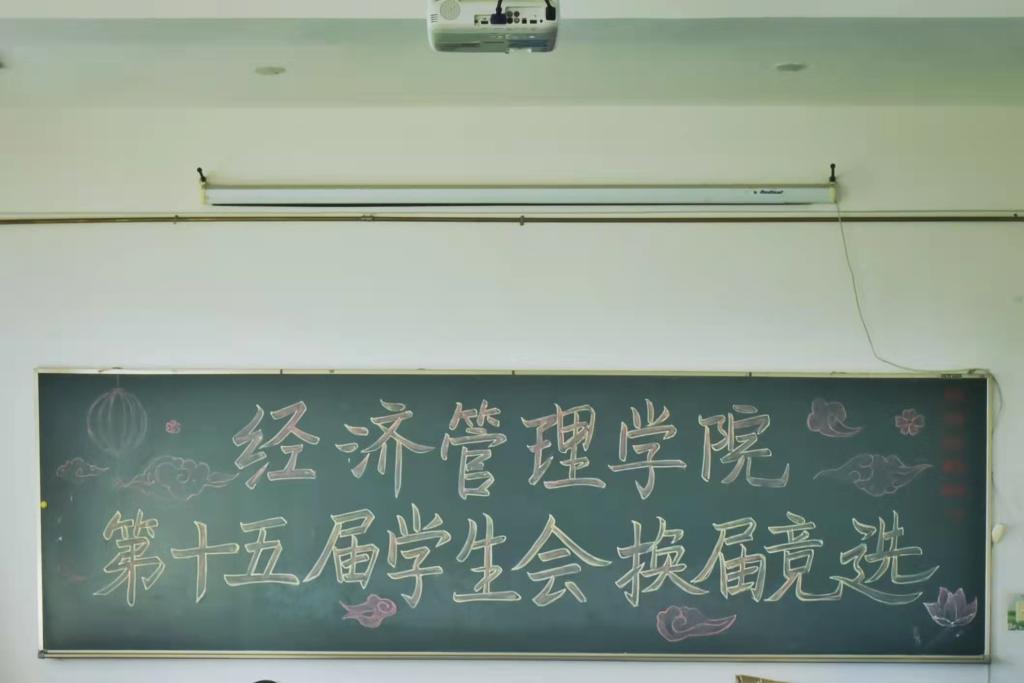 经济管理学院
第十五届学生会换届竞选